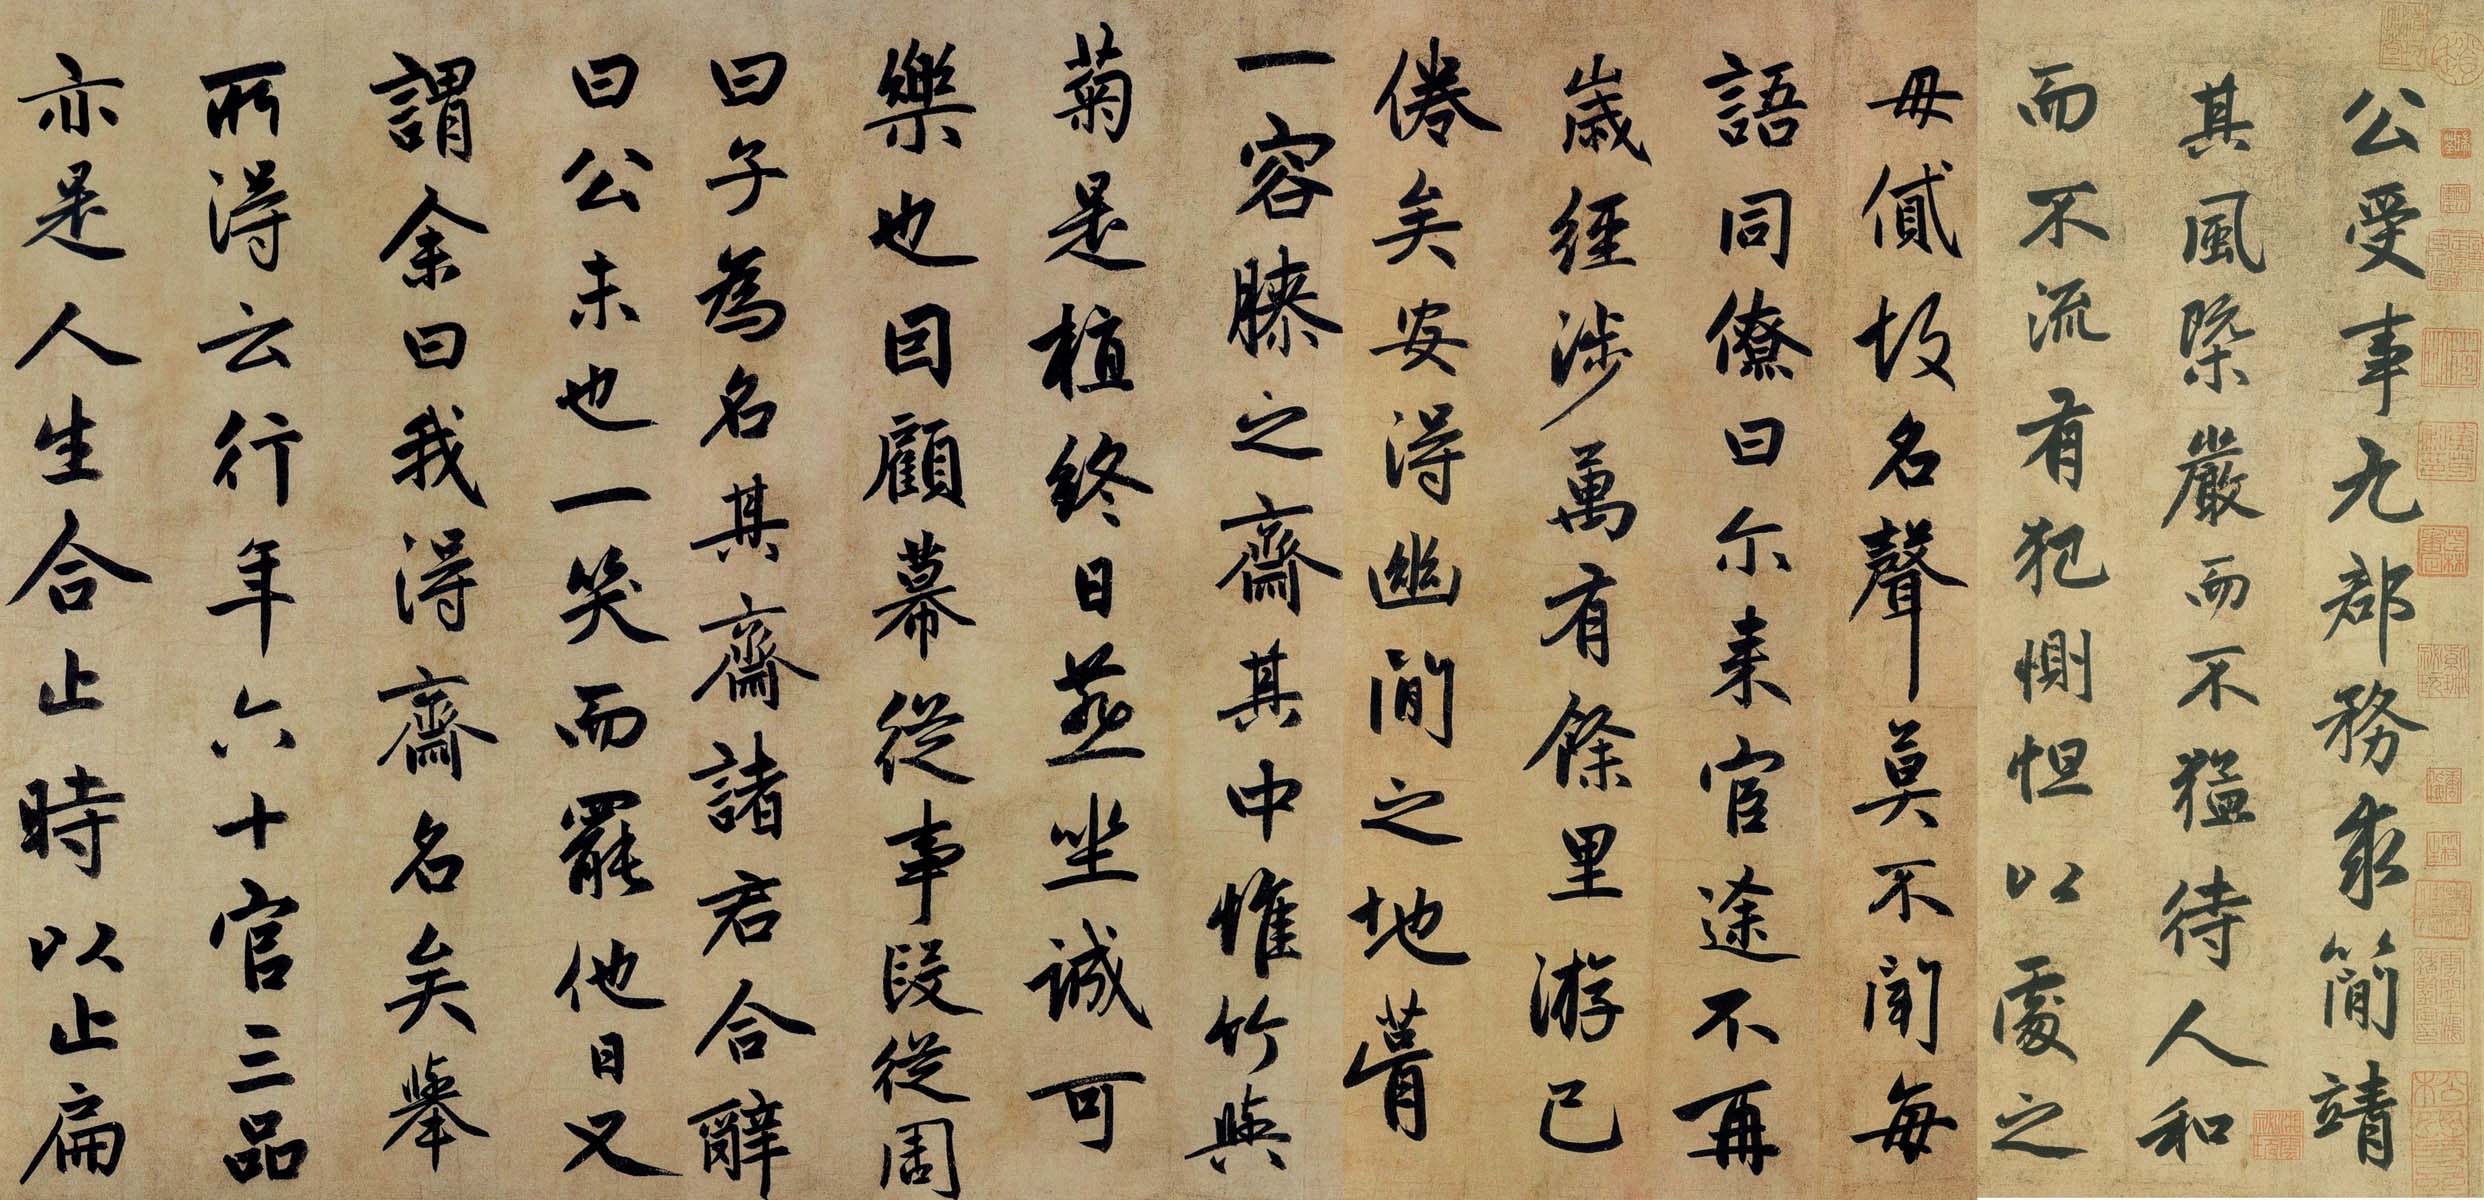 公受事九郡務求簡靖
其風槩嚴而不猛待人和
而不流有犯惻怛以處之
毋貳故名聲莫不聞每
語同僚曰尔来官途不再
歲經涉萬有餘里游已
倦矣安得幽閒之地葺
一容膝之齋其中惟竹與
菊是植終日燕坐誠可
樂也因顧幕從事段從周
曰子為名其齋諸君合辭
曰公未也一笑而罷他日又
謂余曰我得齋名矣舉
所得云行年六十官三品
亦是人生合止時以止扁